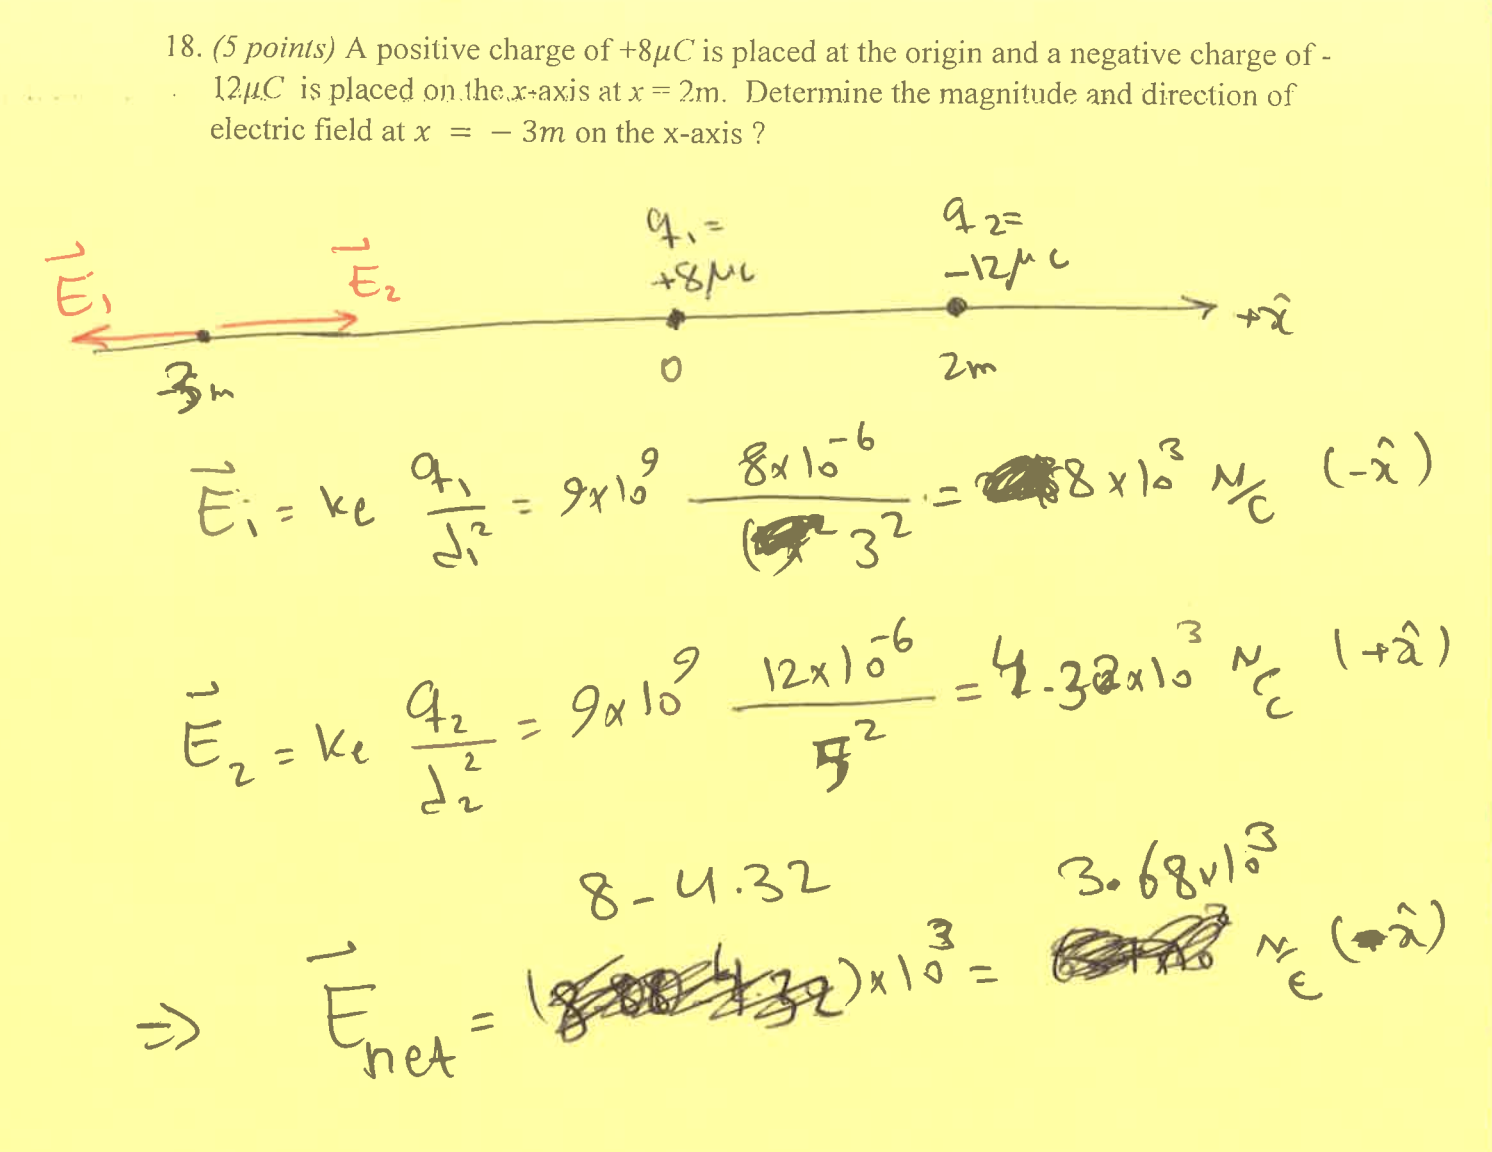 18. (5 points) A positive charge of +8μC is placed at the origin and a negative charge of -
12μC is placed on the x-axis at x = 2m. Determine the magnitude and direction of
electric field at x = − 3m on the x-axis ?
q₁ =
+8μC
q₂ =
-12μC
E⃗₁
E⃗₂
+x̂
-3m
0
2m
E⃗₁ = ke q₁/d₁² = 9x10⁹ 8x10⁻⁶/3² = 8x10³ N/C (-x̂)
E⃗₂ = ke q₂/d₂² = 9x10⁹ 12x10⁻⁶/5² = 4.32x10³ N/C (+x̂)
8-4.32
3.68x10³
⇒ E⃗net = ( )x10³ = N/C (-x̂)